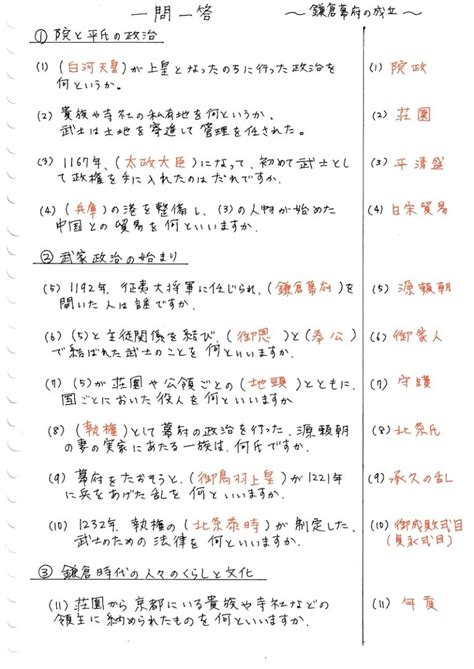 一問一答 〜鎌倉幕府の成立〜
① 院と平氏の政治
(1) (白河天皇)が上皇となったのちに行った政治を (1) 院政
何というか。
(2) 貴族や寺社の私有地を何というか。 (2) 荘園
武士は土地を寄進して管理を任された。
(3) 1167年、(太政大臣)になって、初めて武士とし (3) 平清盛
て政権を手に入れたのはだれですか。
(4) (兵庫)の港を整備し、(3)の人物が始めた (4) 日宋貿易
中国との貿易を何といいますか。
② 武家政治の始まり
(5) 1192年、征夷大将軍に任じられ、(鎌倉幕府)を (5) 源頼朝
開いた人は誰ですか。
(6) (5)と主従関係を結び、(御恩)と(奉公) (6) 御家人
で結ばれた武士のことを何といいますか。
(7) (5)が荘園や公領ごとの(地頭)とともに、 (7) 守護
国ごとにおいた役人を何といいますか
(8) (執権)として幕府の政治を行った、源頼朝 (8) 北条氏
の妻の実家にあたる一族は、何氏ですか。
(9) 幕府をたおそうと、(御鳥羽上皇)が1221年 (9) 承久の乱
に兵をあげた乱を何といいますか。
(10) 1232年、執権の(北条泰時)が制定した、 (10) 御成敗式目
武士のための法律を何といいますか。 (貞永式目)
③ 鎌倉時代の人々のくらしと文化
(11) 荘園から京都にいる貴族や寺社などの (11) 年貢
領主に納められたものを何といいますか。